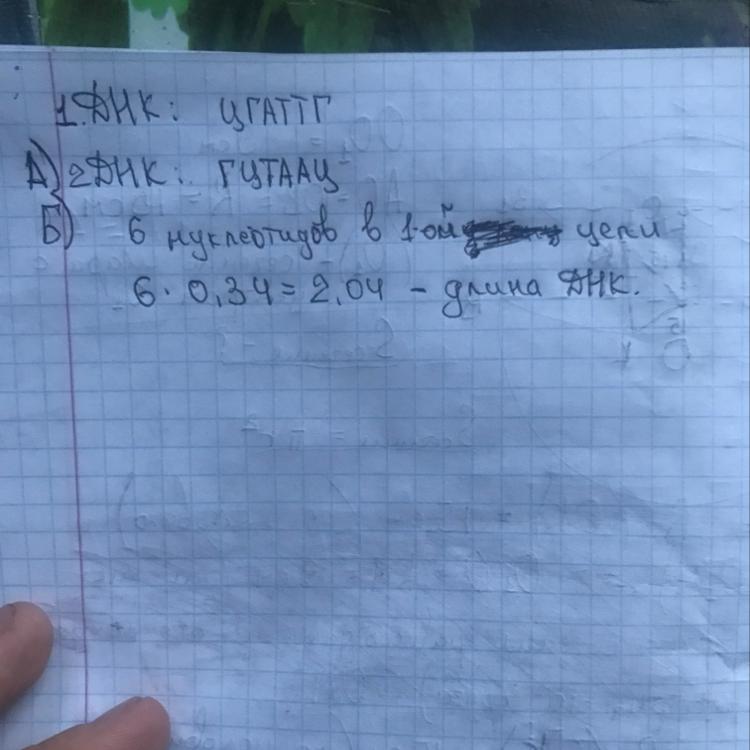 1. ДНК: ЦГАТТГ
А) 2 ДНК: ГЦТААЦ
Б) 6 нуклеотидов в 1-ой цепи
6 · 0,34 = 2,04 - длина ДНК.